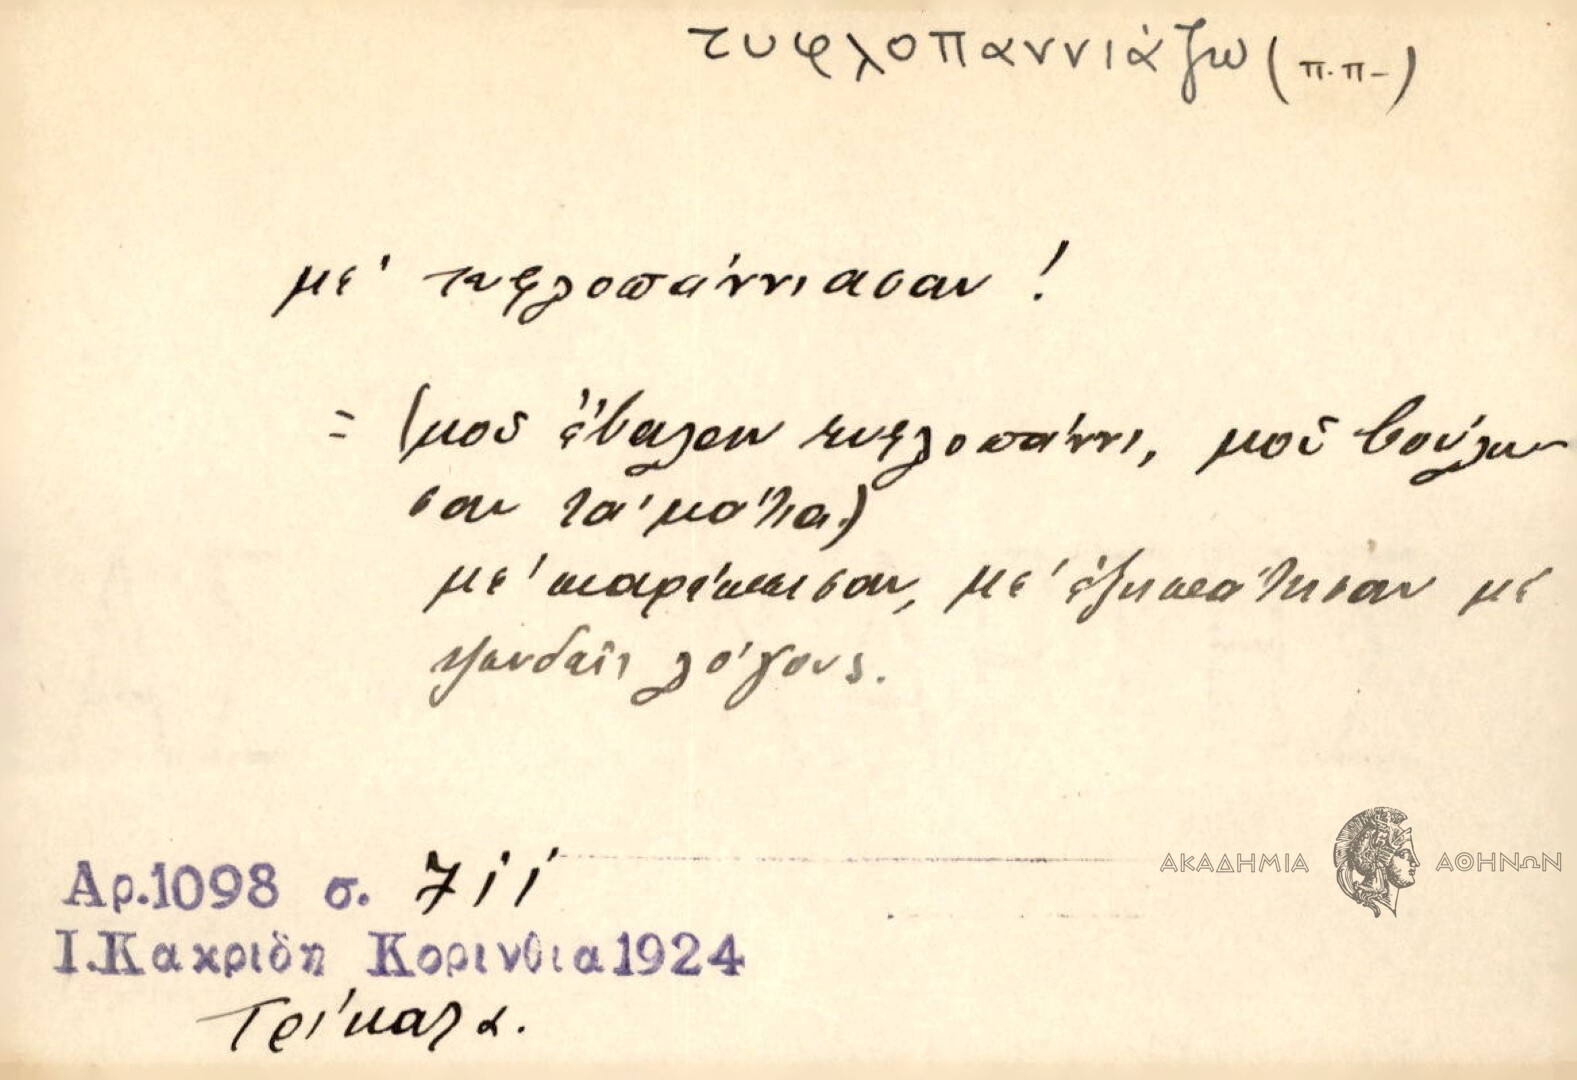 τυφλοπαννιάζω (π.π-)
μὲ τυφλοπάννιασαν !
= (μοῦ ἔβαλαν τυφλοπάννι, μοῦ βούλω-
σαν τὰ μάτια)
μὲ, μὲ ἐξηπάτησαν μὲ
ψευδεῖς λόγους.
Αρ.1098 σ. 711
Ι.Κακριδη Κορινθια1924
Τρίκαλα.
ΑΚΑΔΗΜΙΑ ΑΘΗΝΩΝ